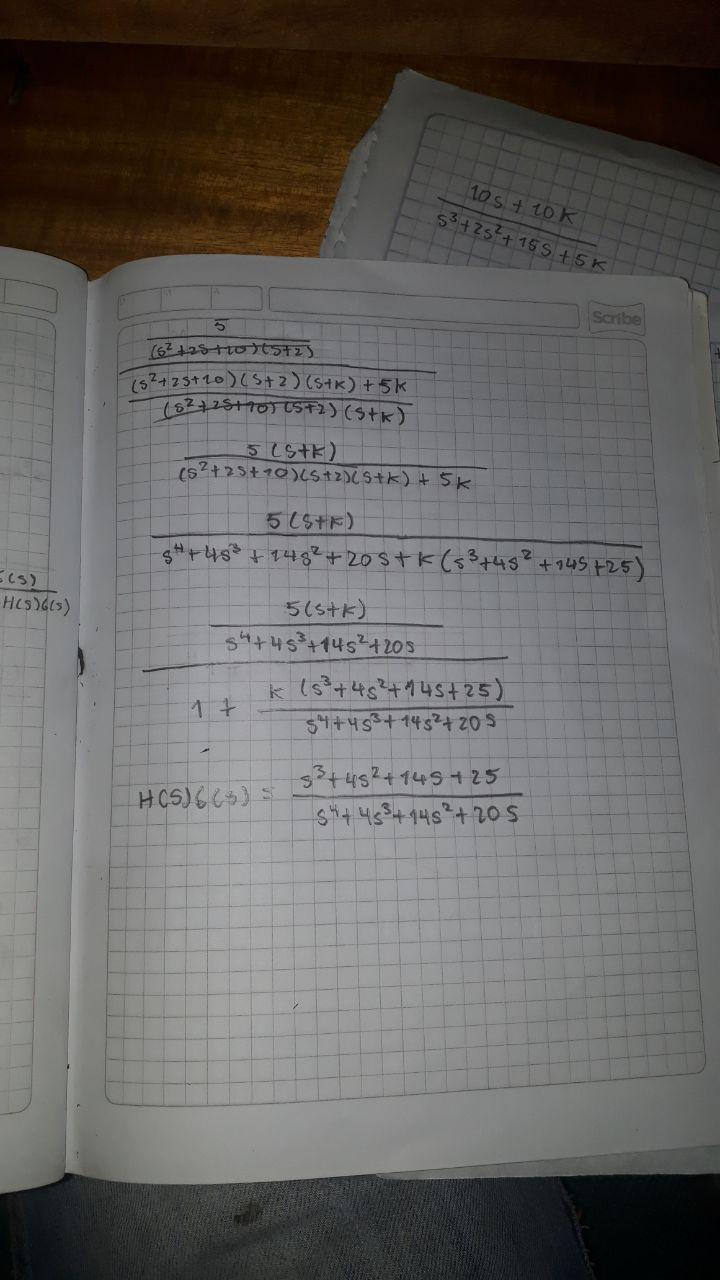 10s + 10k
s³+2s²+15s+5k
Scribe
5
(s²+2s+10)(s+2)
(s²+2s+10)(s+2)(s+k)+5k
(s²+2s+10)(s+2)(s+k)
5(s+k)
(s²+2s+10)(s+2)(s+k)+5k
5(s+k)
s⁴+4s³+14s²+20s+k(s³+4s²+14s+25)
5(s+k)
s⁴+4s³+14s²+20s
1 + k (s³+4s²+14s+25)
s⁴+4s³+14s²+20s
H(s)G(s) = s³+4s²+14s+25
s⁴+4s³+14s²+20s
H(s)G(s)